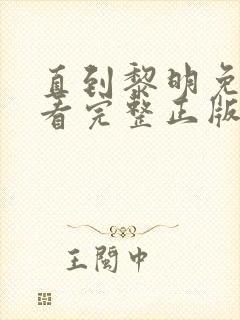 直到黎明免
看完整正版
王阅中